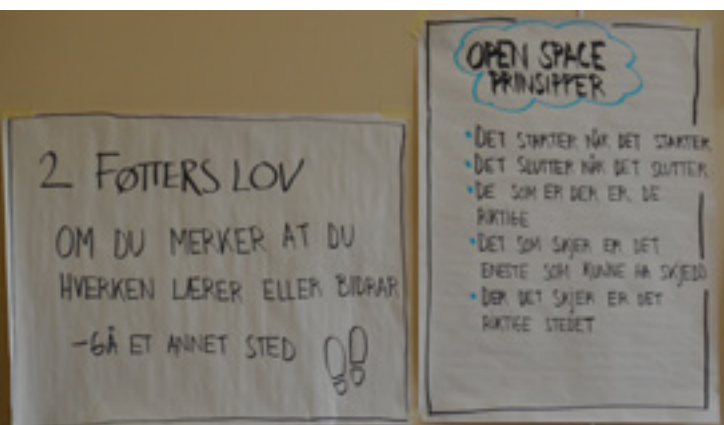 2 FØTTERS LOV
OM DU MERKER AT DU
HVERKEN LÆRER ELLER BIDRAR
-GÅ ET ANNET STED
OPEN SPACE
PRINSIPPER
• DET STARTER NÅR DET STARTER
• DET SLUTTER NÅR DET SLUTTER
• DE SOM ER DER ER DE
RIKTIGE
• DET SOM SKJER ER DET
ENESTE SOM KUNNE HA SKJEDD
• DER DET SKJER ER DET
RIKTIGE STEDET